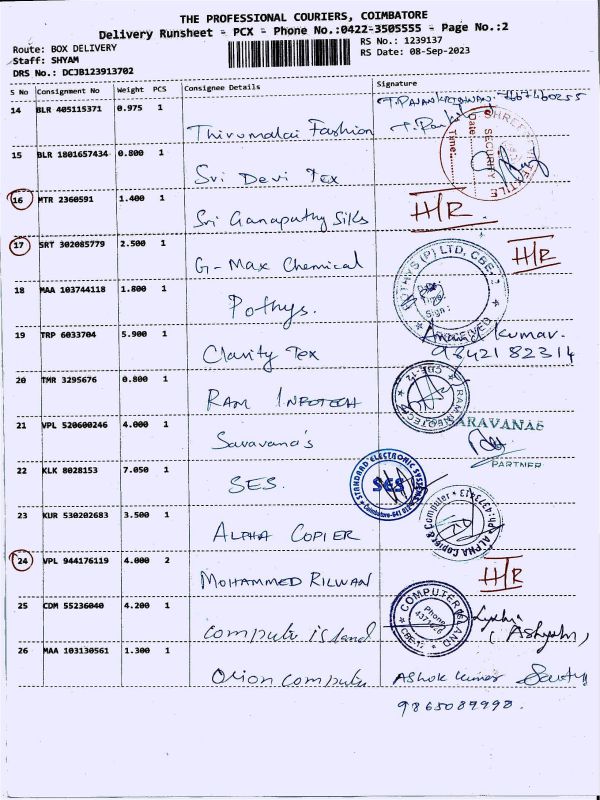 THE PROFESSIONAL COURIERS, COIMBATORE
Delivery Runsheet - PCX - Phone No.:0422-3505555 - Page No.:2
Route: BOX DELIVERY
RS No.: 1239137
Staff: SHYAM
RS Date: 08-Sep-2023
DRS No.: DCJB123913702
S No Consignment No Weight PCS Consignee Details Signature
14 BLR 405115371 0.975 1 Thirumalai Fashion
15 BLR 1801657434 0.800 1 Sri Devi Tex
SECURITY
Date:
Time:
16 MTR 2360591 1.400 1 Sri Ganapathy Silks H/R
17 SRT 302085779 2.500 1 G-Max Chemical H/R
18 MAA 103744118 1.800 1 Pothys.
POTHYS (P) LTD, CBE-1
Sign:
RECEIVED
19 TRP 6033704 5.900 1 Clarity Tex kumar.
9842182314
20 TMR 3295676 0.800 1 RAM INFOTECH
RAM INFOTECH CBE-12
21 VPL 520600246 4.000 1 Saravana's
SARAVANAS
PARTNER
22 KLK 8028153 7.050 1 SES.
STANDARD ELECTRONIC SYSTEMS
SES
23 KUR 530202683 3.500 1 ALPHA COPIER
ALPHA Copier & Computer
24 VPL 944176119 4.000 2 MOHAMMED RILWAN H/R
25 CDM 55236040 4.200 1 Compute island
COMPUTER ISLAND
Phone
26 MAA 103130561 1.300 1 Orion Compute Ashok kumar
9865089998.